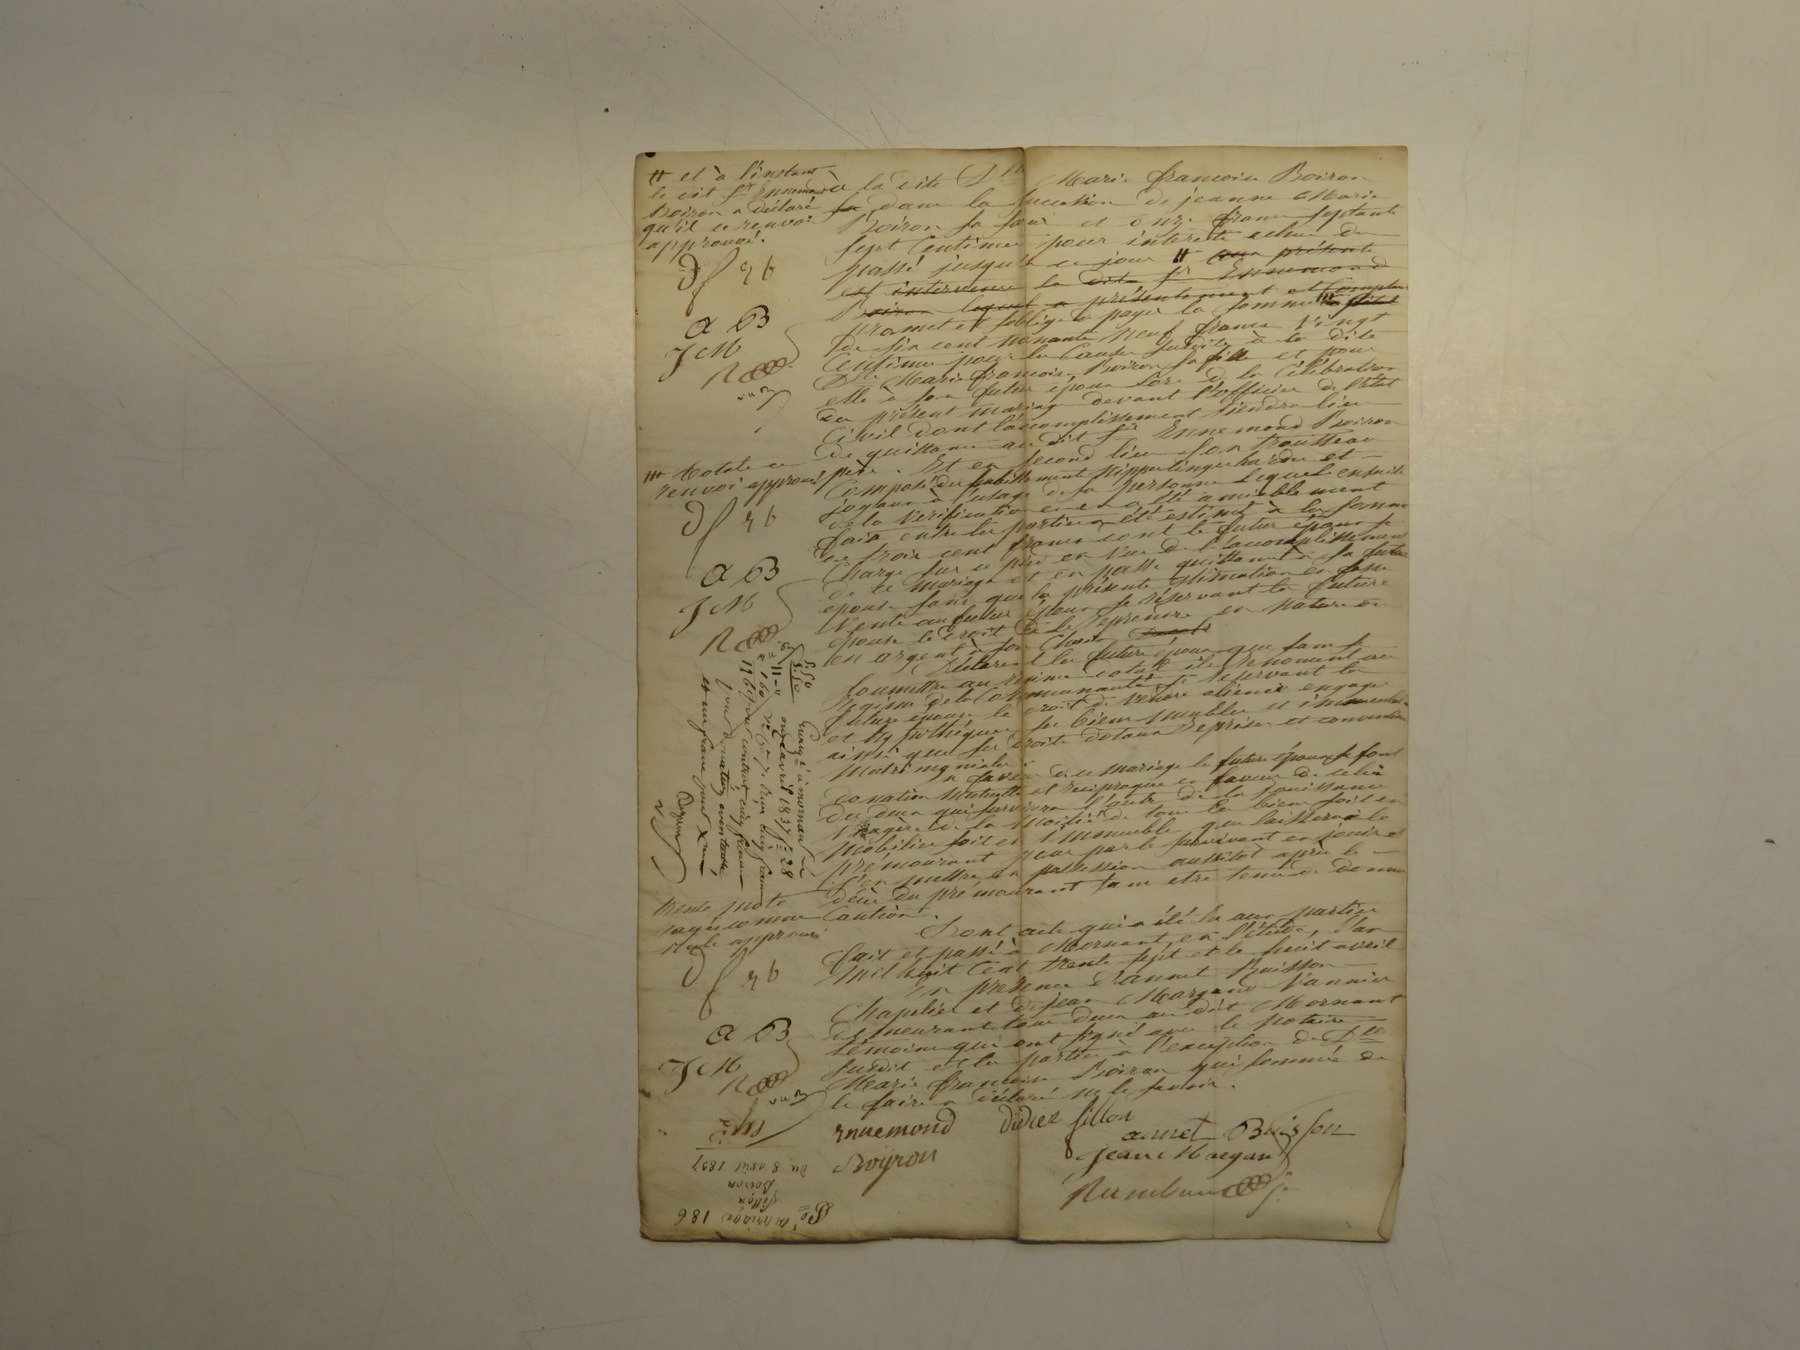 # et à l'instant
le dit Sr Ennemond
Boiron a déclaré
qu'il ce renvoi
approuvé.
Df Eb
a B
J M
à la dite Dlle Marie françoise Boiron
dans la succession de jeanne Marie
Boiron sa sœur et onze francs septante
sept Centimes pour interets echus du
passé jusqu'à ce jour # aux présentes
est intervenu le dit Sr Ennemond
Boiron lequel a présentement et
promet et s'oblige à payer la somme
de six cent nonante neuf francs vingt
Centimes pour les Causes susdites à la dite
Dlle Marie françoise Boiron sa fille et pour
elle à son futur époux lors de la Célébration
du présent mariage devant l'officier de l'état
Civil dont l'accomplissement tiendra lieu
de quittance au dit Sr Ennemond Boiron
père. Et en second lieu son trousseau
Composé des habillements nippes linges hardes et
joyaux à l'usage de sa personne lequel ensuite
de la vérification en a été amiablement
fait entre les parties a été estimé à la somme
de trois cent francs dont le futur époux se
Charge sur ce pied en vue de l'accomplissement
de ce mariage et en passe quittance à sa future
épouse sans que la présente estimation en fasse
Vente au futur époux se réservant la future
épouse le droit de le reprendre en nature ou
en argent à son Choix
Déclarent les futurs époux que sans se
soumettre au régime dotal ils renoncent au
régime de la Communauté se réservant la
future épouse le droit de vendre aliéner engager
et hypothéquer ses biens meubles et immeubles
ainsi que ses droits dotaux reprises et conventions
Matrimoniales.
En faveur de ce mariage les futurs époux se font
donation mutuelle et réciproque en faveur de celui
des deux qui survivra l'autre de la jouissance
Viagère de la moitié de tous les biens soit en
mobilier soit en immeubles que laissera le
prémourant pour par le survivant en jouir et
s'en mettre en possession aussitôt après le
décès du prémourant sans etre tenu de donner
Caution.
Dont acte qui a été lu aux parties
fait et passé à Mornant, en l'étude, l'an
Mil huit Cent trente sept et le huit avril
En présence d'annet Buisson
Chapelier et de jean Margand Vannier
demeurant tous deux au dit Mornant
témoins qui ont signé avec le notaire
susdit et les parties à l'exception de Dlle
Marie françoise Boiron qui sommée de
le faire a déclaré ne le savoir.
### totale ce
renvoi approuvé
Df Eb
a B
J M
Enreg.é à mornant
onze avril 1837 fo 28
pour donation éventuelle
trente mots
rayés comme
nuls approuvé
Df Eb
a B
J M
ennemond didier fillon
Boiron annet Buisson
jean Margan
mariage 186
fillon
Boiron
du 8 avril 1837